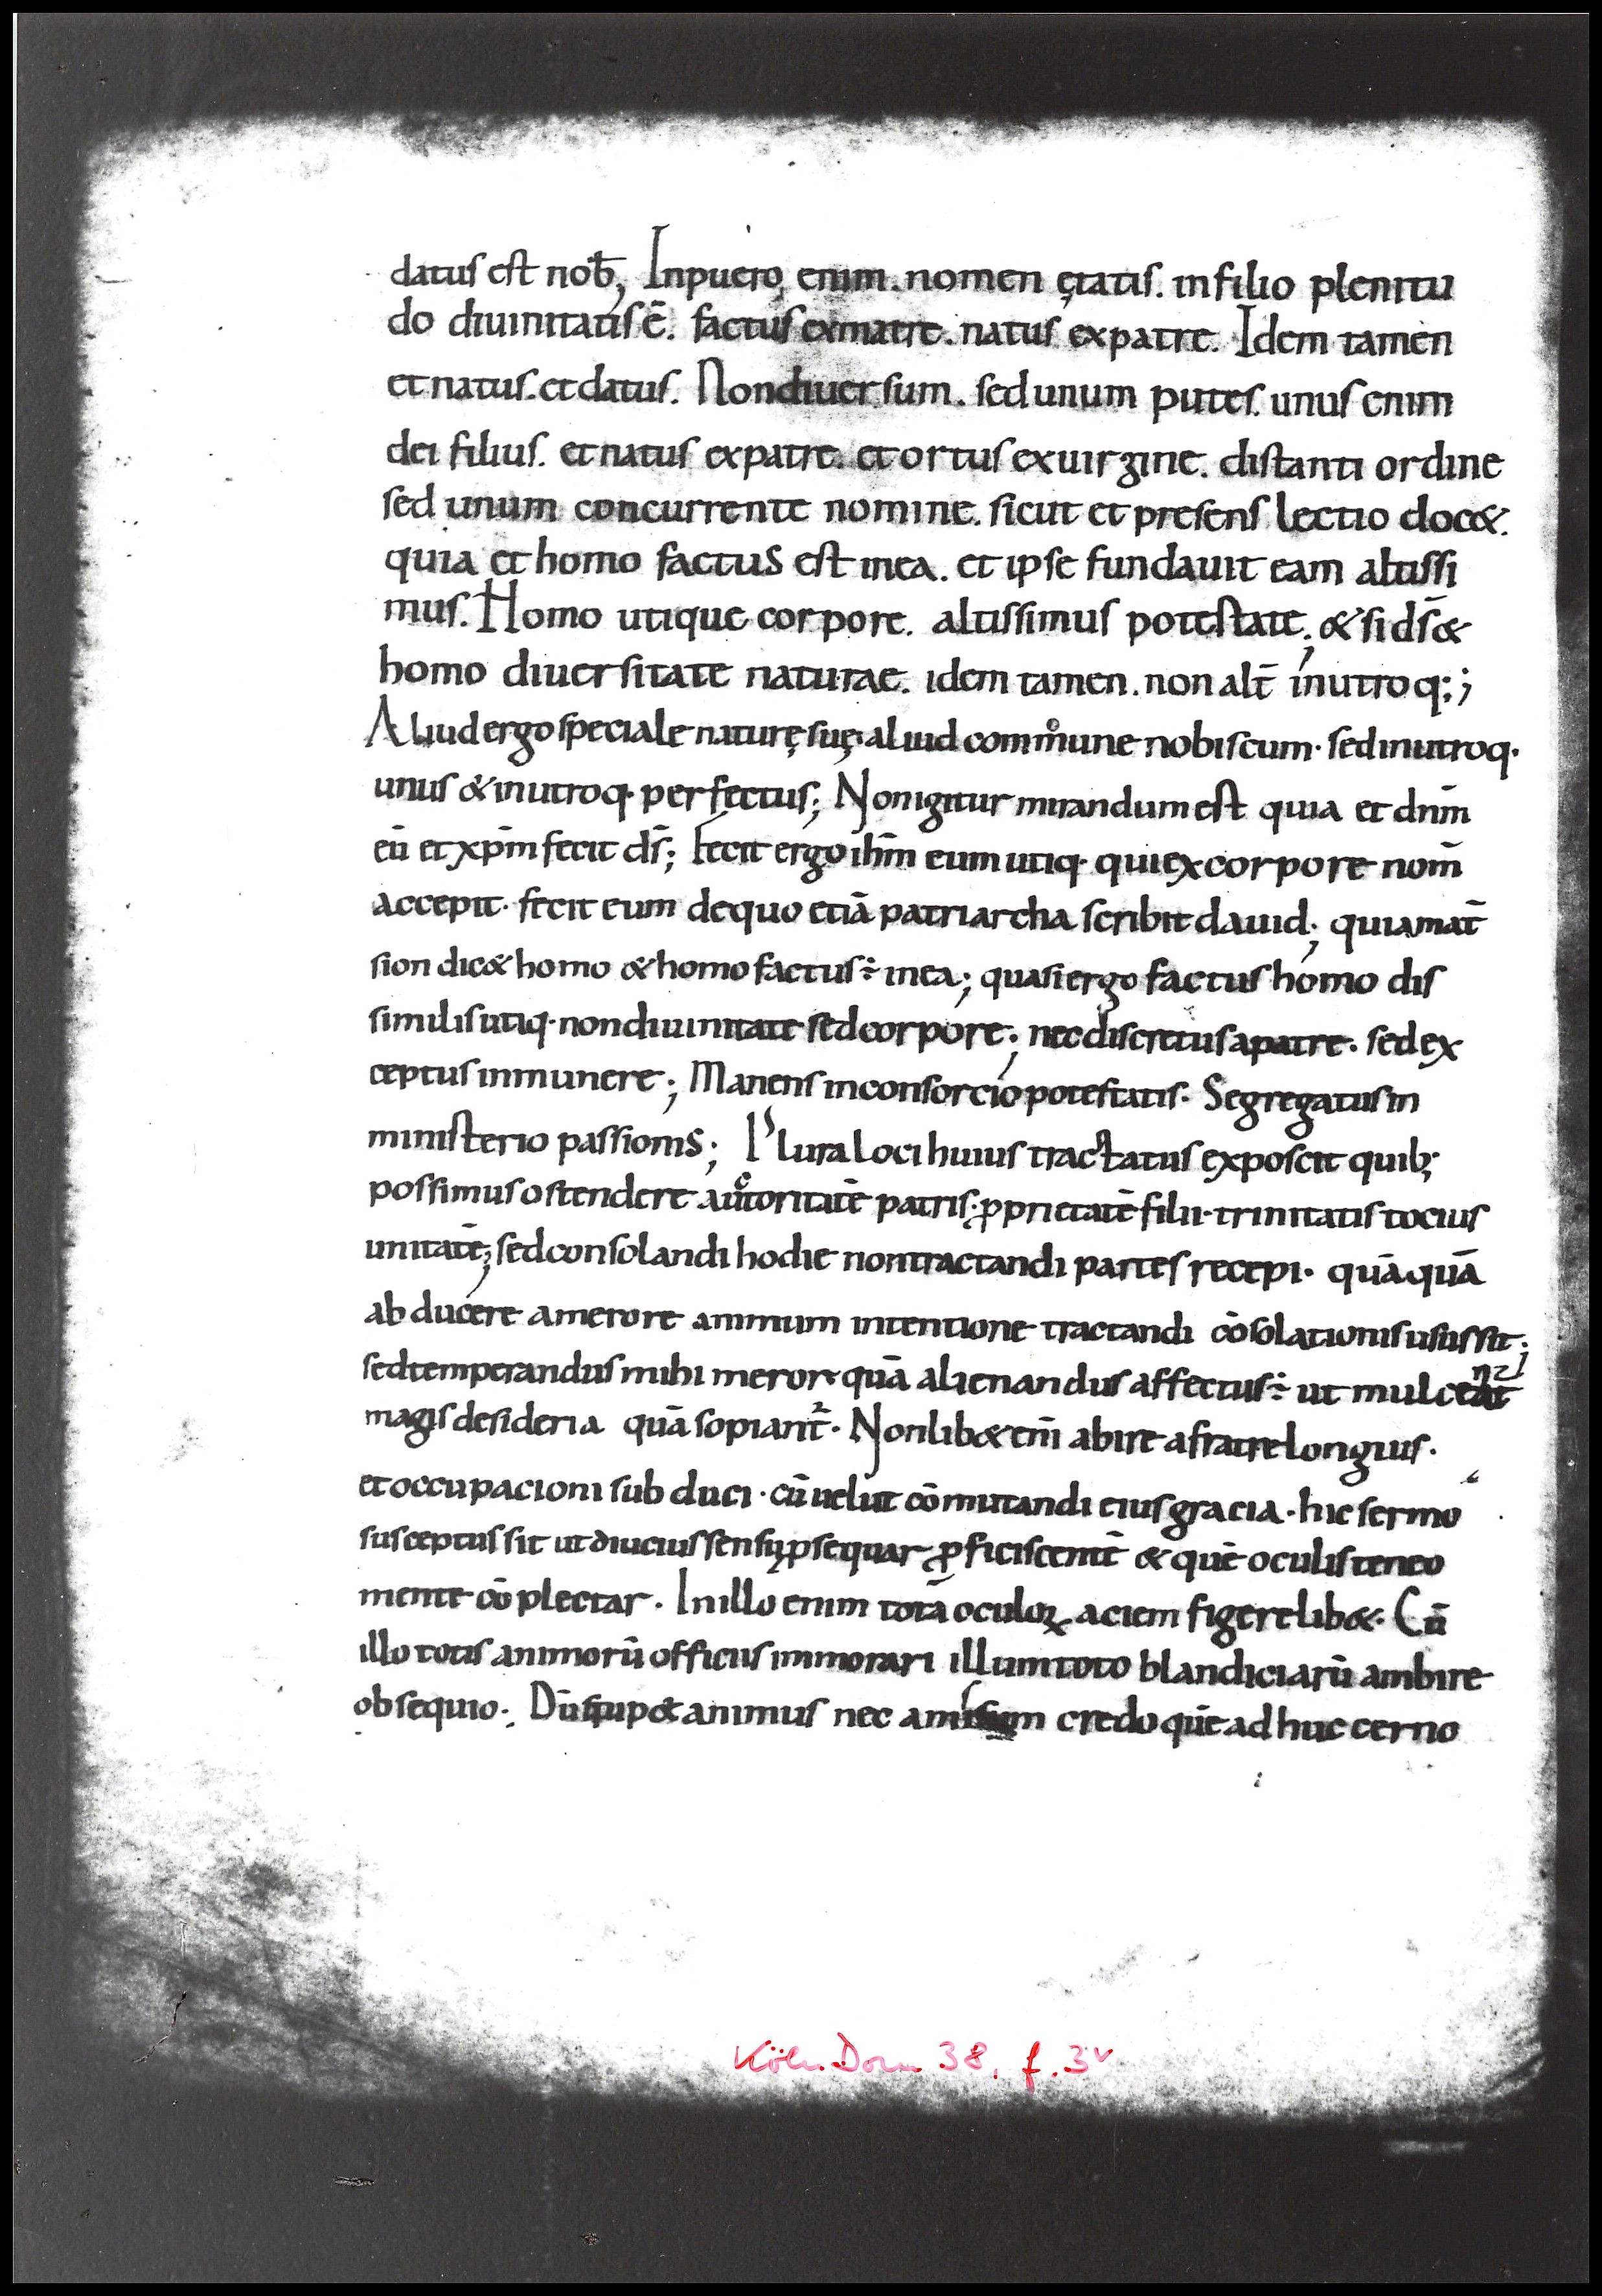 datus est nob̄; Inpuero enim. nomen ętatis. infilio plenitu
do diuinitatis ē. factus exmatre. natus expatre. Idem tamen
et natus. et datus. Nondiuersum. sed unum putes. unus enim
dei filius. et natus expatre. et ortus exuirgine. distanti ordine
sed unum concurrente nomine. sicut et presens lectio doc&.
quia et homo factus est inea. et ipse fundauit eam altissi
mus. Homo utique corpore. altissimus potestate; & si ds̄ &
homo diuersitate naturae. idem tamen. non alt̄ inutroq;;
Aliud ergo speciale naturę suę. aliud commune nobiscum. sed inutroq.
unus & inutroq. perfectus; Nonigitur mirandum est quia et dnm̄
eū et xp̄m fecit ds̄; Fecit ergo ihm̄ eum utiq. qui excorpore nom̄
accepit. fecit eum dequo etiā patriarcha scribit dauid; quia mat̄
sion dic& homo & homo factus ÷ inea; quasi ergo factus homo dis
similis utiq. non diuinitate sed corpore; nec discretus apatre. sed ex
ceptus inmunere; Manens inconsorcio potestatis. Segregatus in
ministerio passionis; Plura loci huius tractatus exposcit quib;
possimus ostendere auctoritatē patris. ꝓprietatē filii. trinitatis tocius
unitatē; sed consolandi hodie non tractandi partes recepi. quāquā
abducere amerore animum intentione tractandi cōsolationis usus sit;
sed temperandus mihi meror quā alienandus affectus ÷ ut
magis desideria quā sopiant̄. Nonlib& eni̅ abire afratre longius.
et occupacioni subduci. cū uelut cōmitandi eius gracia. hic sermo
susceptus sit ut diucius sensu ꝑsequar ꝓficiscentē & quē oculis teneo
mente cōplectar. Inillo enim totā oculoꝝ aciem figere lib&. Cū
illo totis animorū officiis immorari illum toto blandiciarū ambire
obsequio. animus nec credo quē adhuc cerno
Köln Dom 38, f. 3v